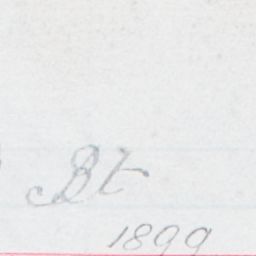 Bt
1899